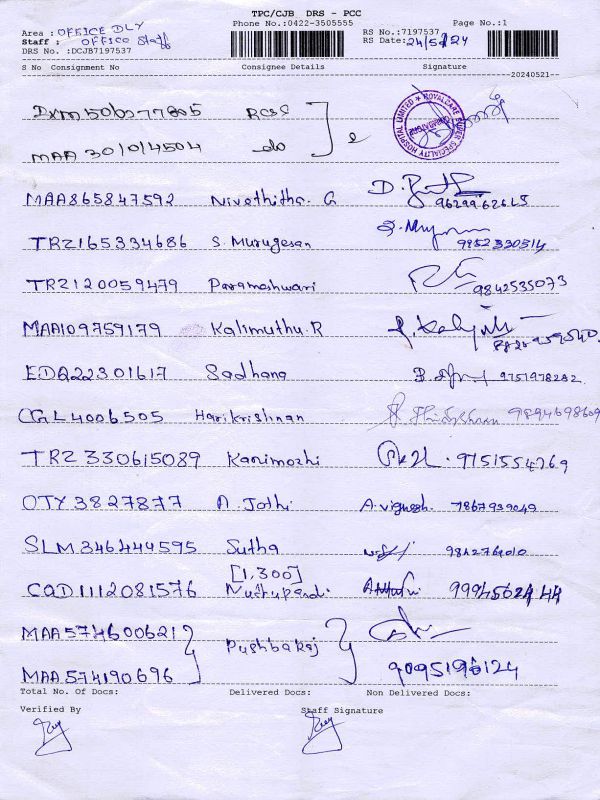 TPC/CJB DRS - PCC
Phone No.:0422-3505555 Page No.:1
Area : OFFICE DLY
Staff : OFFICE Staff
DRS No. :DCJB7197537
RS No.:7197537
RS Date:24/5/24
S No Consignment No Consignee Details Signature
--20240521--
RCSS
MAA 301014504 do
ROYALCARE SUPER SPECIALITY HOSPITAL LIMITED
MAA865847592 Nivethitha. G
TRZ165334686 S. Murugesan 9952330514
TRZ120059479 Parameshwari 9842535073
MAA109759179 Kalimuthu.R
EDQ22301617 Sadhana 9751978282
CGL4006505 Harikrishnan 9894698609
TRZ330615089 Kanimozhi 9751554269
OTY3827877 A. Jothi A. vignesh. 7867939049
SLM346444595 Sutha
[1,300]
COD1112081576
MAA574600621
Pushbaraj
MAA574190696 9095196124
Total No. Of Docs: Delivered Docs: Non Delivered Docs:
Verified By Staff Signature